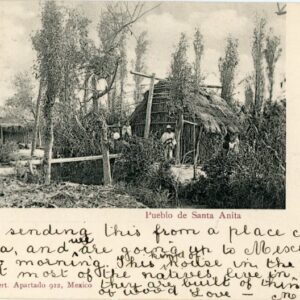 Pueblo de Santa Anita
sending this from a place c
a, and will are going up to Mexico
morning. This house in the
the kind of
t most of the natives live in.
ert. Apartado 922, Mexico they are built of thin
of wood Love -